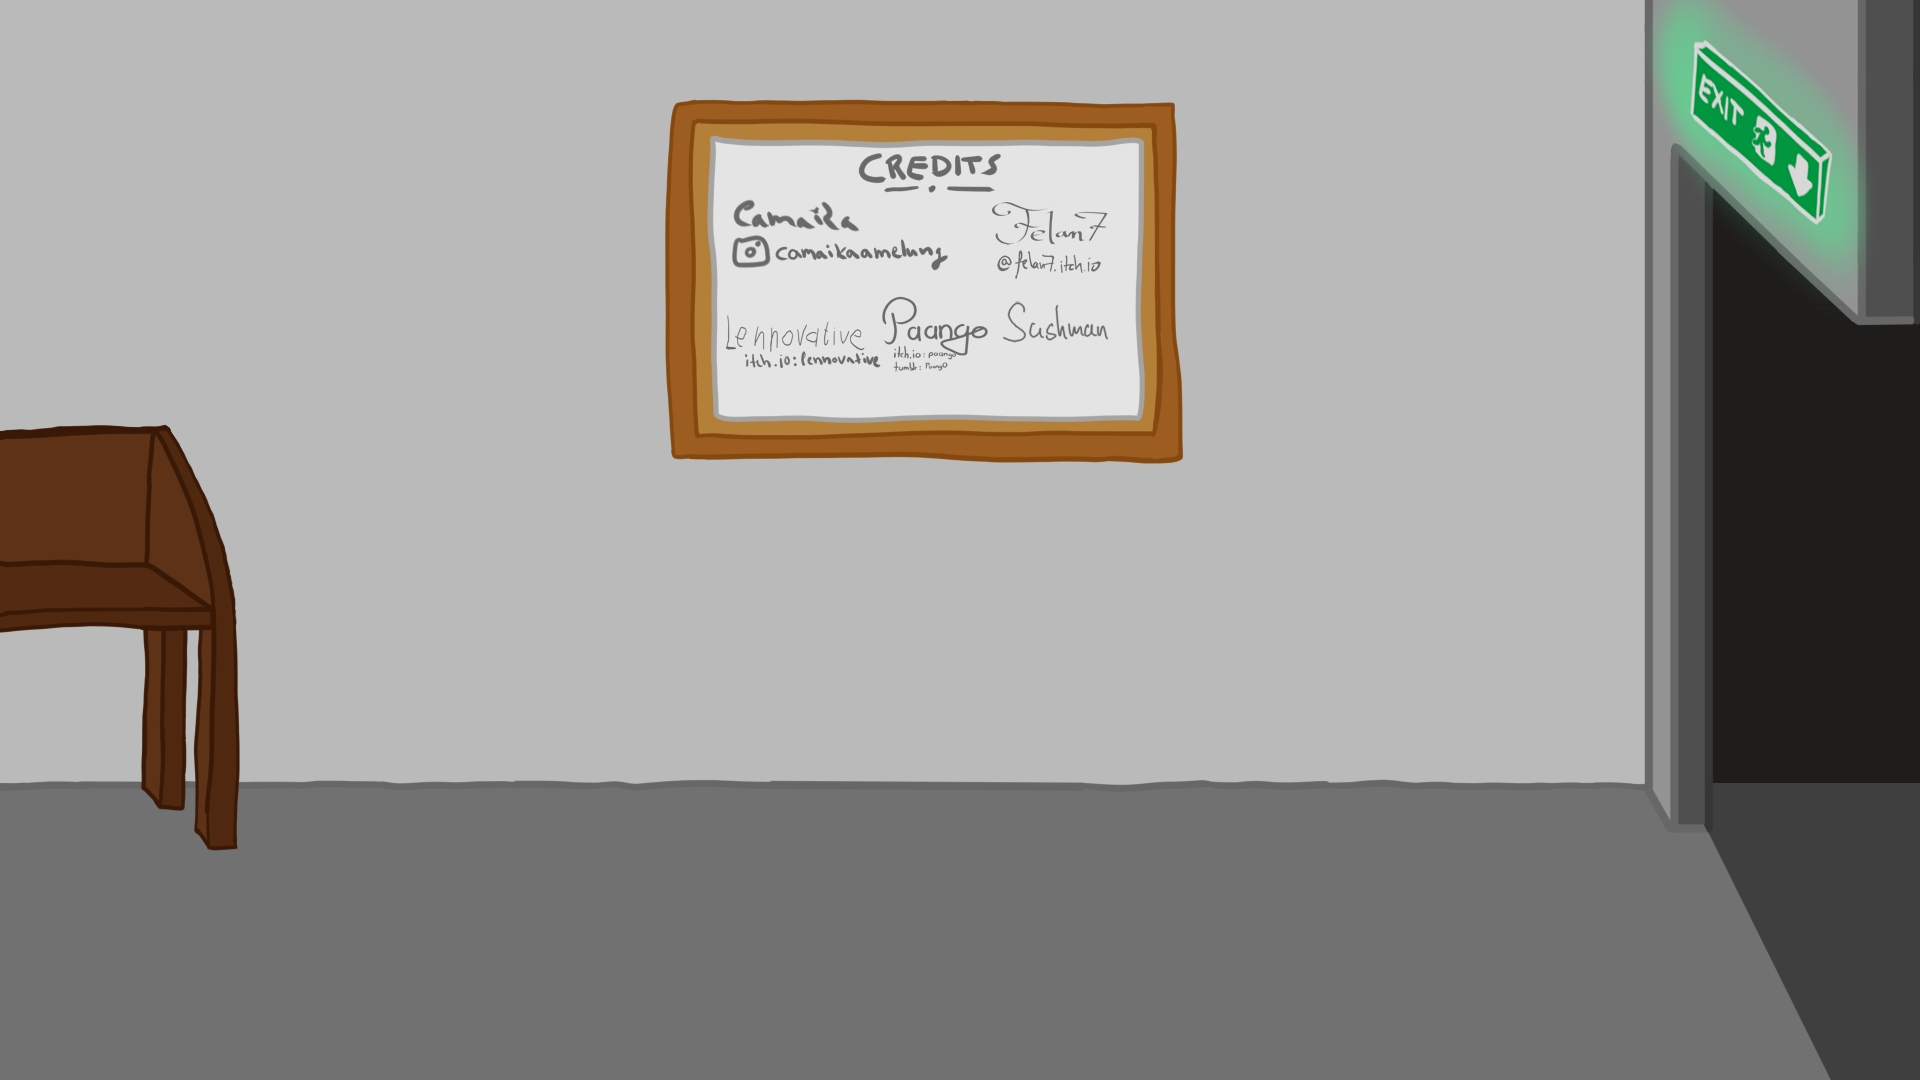 CREDITS
Camaika
camaikaamelung
Felan7
@felan7.itch.io
Lennovative
itch.io:lennovative
Paango
itch.io: paango
tumblr: PaangO
Sashman
EXIT